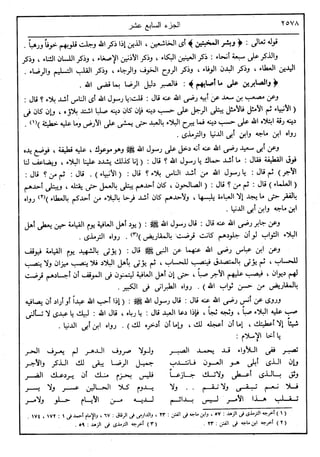 ٢٥٧٨ الجزء السابع عشر
قوله تعالى : ﴿ وبشر المخبتين ﴾ أى الخاشعين ، الذين إذا ذكر الله وجلت قلوبهم خوفاً ورهباً .
والذكر على سبعة أنحاء : ذكر العينين البكاء ، وذكر الأذنين الإصغاء ، وذكر اللسان الثناء ، وذكر
اليدين العطاء ، وذكر البدن الوفاء ، وذكر الروح الخوف والرجاء ، وذكر القلب التسليم والرضاء .
﴿ والصابرين على ما أصابهم ﴾ : فالصبر دليل الرضا بما قضى الله .
وعن مصعب بن سعد عن أبيه رضى الله عنه قال : قلت : يا رسول الله أى الناس أشد بلاء ؟ قال :
( الأنبياء ثم الأمثل فالأمثل يبتلى الرجل على حسب دينه فإن كان دينه صلبا اشتد بلاؤه ، وإن كان فى
دينه رقة ابتلاه الله على حسب دينه فما يبرح البلاء بالعبد حتى يمشى على الأرض وما عليه خطيئة )(١)
رواه ابن ماجه وابن أبى الدنيا والترمذى .
وعن أبى سعيد رضى الله عنه أنه دخل على رسول الله ﷺ وهو موعوك ، عليه قطيفة ، فوضع يده
فوق القطيفة فقال : ما أشد حماك يا رسول الله ؟ قال : ( إنا كذلك يشدد علينا البلاء ، ويضاعف لنا
الأجر ) ثم قال : يا رسول الله من أشد الناس بلاء ؟ قال : ( الأنبياء ) . قال : ثم من ؟ قال :
( العلماء ) قال : ثم من ؟ قال : ( الصالحون ، كان أحدهم يبتلى بالقمل حتى يقتله ، ويبتلى أحدهم
بالفقر حتى ما يجد إلا العباءة يلبسها ، ولأحدهم كان أشد فرحا بالبلاء من أحدكم بالعطاء )(٢) رواه
ابن ماجه وابن أبى الدنيا .
وعن جابر رضى الله عنه قال : قال رسول الله ﷺ : ( يود أهل العافية يوم القيامة حين يعطى أهل
البلاء الثواب لو أن جلودهم كانت قرضت بالمقاريض )(٣) . رواه الترمذى .
وعن ابن عباس رضى الله عنهما عن النبى ﷺ قال : ( يؤتى بالشهيد يوم القيامة فيوقف
للحساب ، ثم يؤتى بالمتصدق فينصب للحساب ، ثم يؤتى بأهل البلاء فلا ينصب لهم ميزان ولا ينصب
لهم ديوان ، فيصب عليهم الأجر صباً ، حتى إن أهل العافية ليتمنون فى الموقف أن أجسادهم قرضت
بالمقاريض من حسن ثواب الله ) . رواه الطبرانى فى الكبير .
وروى عن أنس رضى الله عنه قال : قال رسول الله ﷺ : ( إذا أحب الله عبداً أو أراد أن يصافيه
صب عليه البلاء صباً ، وثجه ثجاً ، فإذا دعا العبد قال : يا رباه ، قال الله : لبيك يا عبدى لا تسألنى
شيئاً إلا أعطيتك ، إما أن أعجله لك ، وإما أن أدخره لك ) . رواه ابن أبى الدنيا .
يا أخا الإسلام :
(١) أخرجه الترمذى فى الزهد : ٥٧ ، وابن ماجه فى الفتن : ٢٣ ، والدارمى فى الرقاق : ٦٧ ، والإمام أحمد فى ١ : ١٧٢ ، ١٧٤ .
(٢) أخرجه ابن ماجه فى الفتن : ٢٣ . (٣) أخرجه الترمذى فى الزهد : ٥٩ .